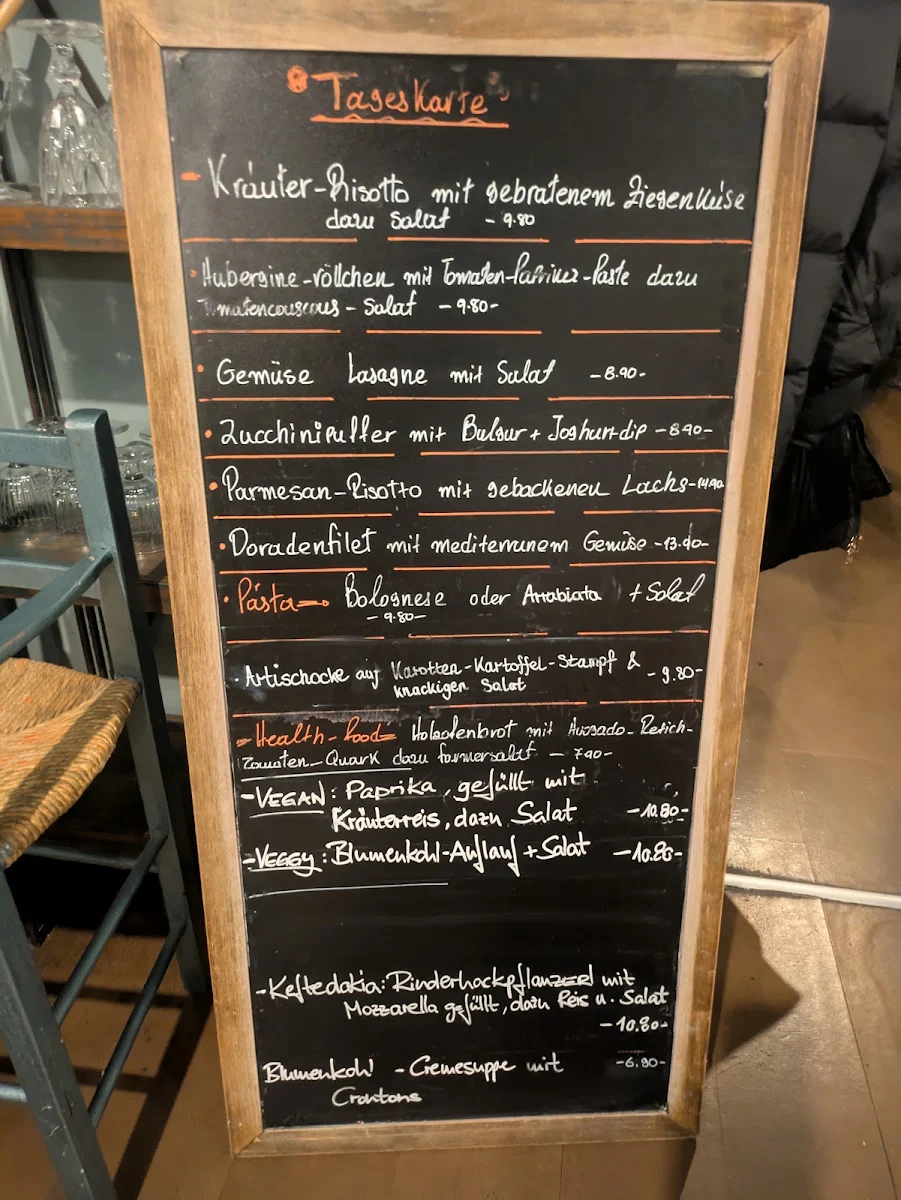 Tageskarte
- Kräuter-Risotto mit gebratenem Ziegenkäse
dazu Salat - 9.80
• Aubergine-röllchen mit Tomaten-Paprika-Paste dazu
Tomatencouscous - Salat - 9.80-
• Gemüse Lasagne mit Salat - 8.90-
• Zucchinipuffer mit Bulgur + Joghurt-dip - 8.90-
• Parmesan-Risotto mit gebackenen Lachs - 14.90
• Doradenfilet mit mediterranem Gemüse - 13.90-
• Pasta → Bolognese oder Arrabiata + Salat
- 9.80-
• Artischocke auf Karotten-Kartoffel-Stampf &
knackigen Salat - 9.80-
- Health-food= Holzofenbrot mit Avocado-Retich-
Tomaten-Quark dazu farmersalat - 7.90-
- VEGAN: Paprika, gefüllt mit
Kräuterreis, dazu Salat - 10.80-
- VEGGY: Blumenkohl-Auflauf + Salat - 10.80-
- Keftedakia: Rinderhackpflanzerl mit
Mozzarella gefüllt, dazu Reis u. Salat
- 10.80-
Blumenkohl - Cremesuppe mit - 6.90-
Croutons